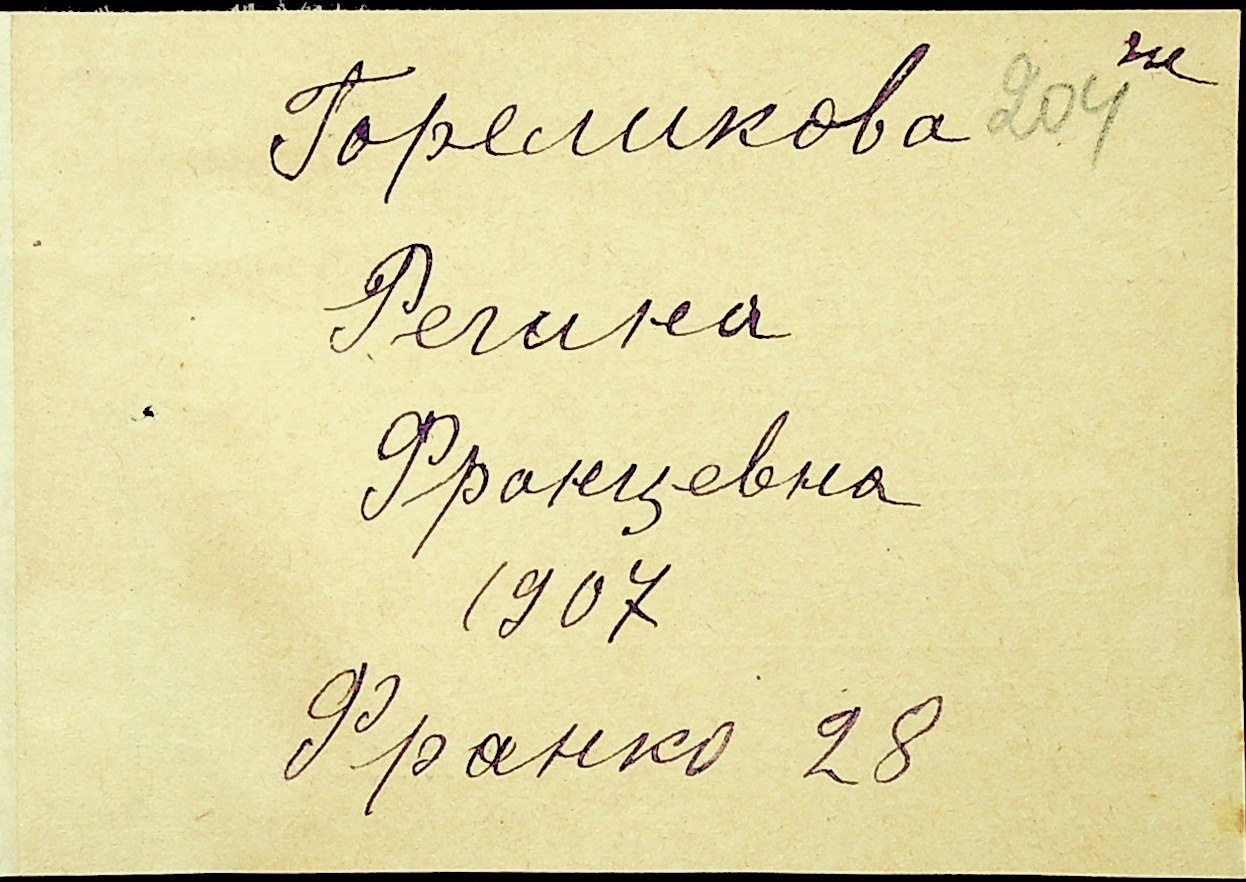 Гореликова 204
Регина
Францевна
1907
Франко 28